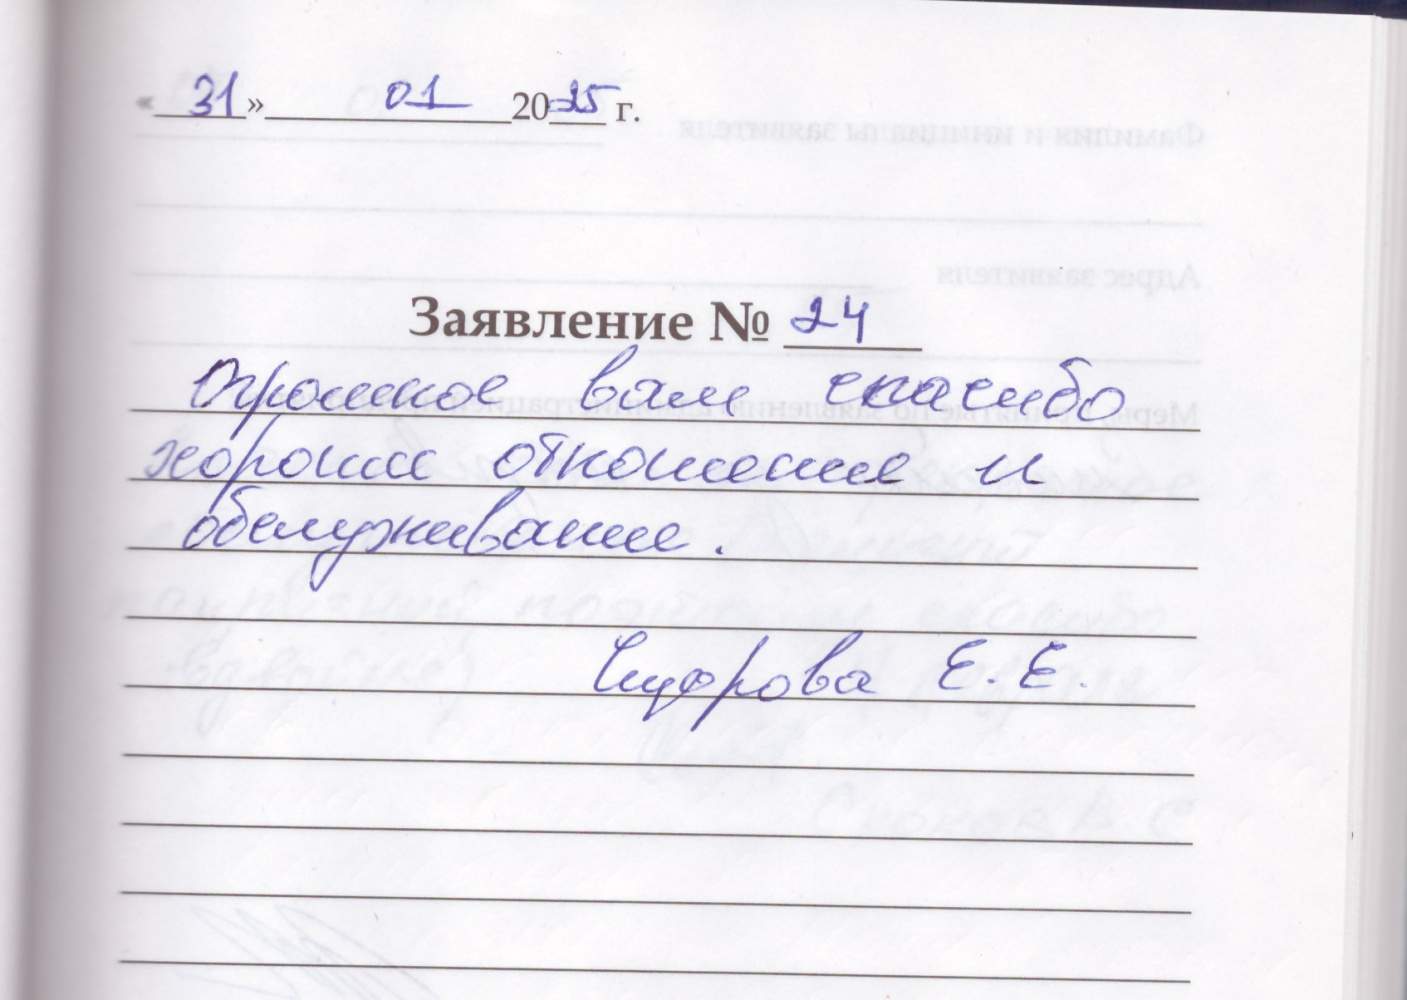 « 31 » 01 2025 г.
Заявление № 24
Огромное вам спасибо
хорошии отношение и
обслуживание.
Е. Е.